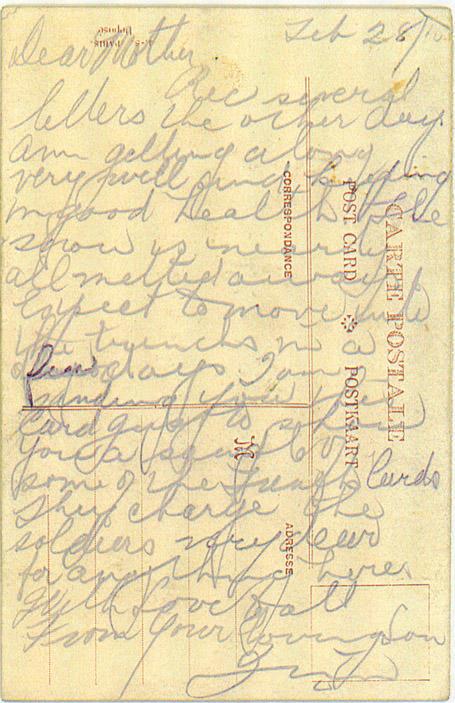 Feb 28/
Dear Mother,
Rec several
letters the other day.
am getting along
very well and keeping
in good health. The
snow is nearly
all melted away
Expect to move into
the trenches in a
few days I am
sending you this
card just to show
you a
some of the Cards
They charge the
soldiers very dear
for anything here
With love to all
From your loving son
CARTE POSTALE
POST CARD POSTKAART
CORRESPONDANCE
ADRESSE
M
PARIS
Déposé